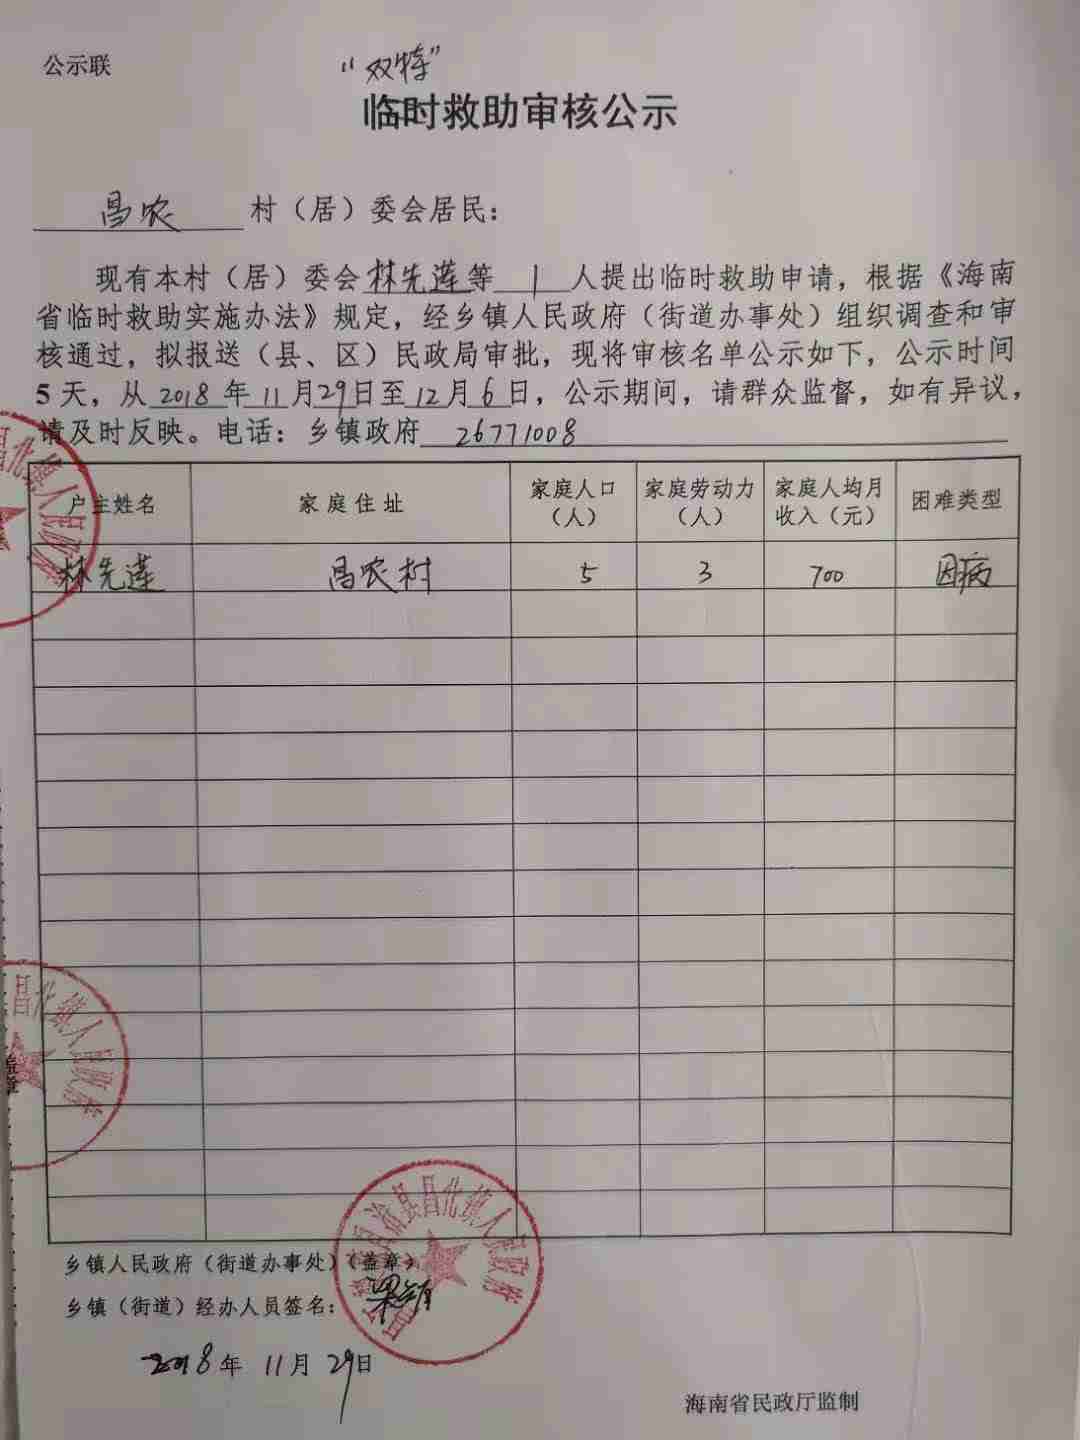 公示联
“双特”
临时救助审核公示
昌农 村（居）委会居民：
现有本村（居）委会林先莲等 1 人提出临时救助申请，根据《海南
省临时救助实施办法》规定，经乡镇人民政府（街道办事处）组织调查和审
核通过，拟报送（县、区）民政局审批，现将审核名单公示如下，公示时间
5 天，从 2018 年 11 月 29 日至 12 月 6 日，公示期间，请群众监督，如有异议，
请及时反映。电话：乡镇政府 26771008
户主姓名 家庭住址 家庭人口（人） 家庭劳动力（人） 家庭人均月收入（元） 困难类型
林先莲 昌农村 5 3 700 因病
昌化镇人民政府
昌化镇人民政府
盖章
治县昌化镇人民政府
乡镇人民政府（街道办事处）（盖章）
乡镇（街道）经办人员签名：
2018年 11月 29日
海南省民政厅监制